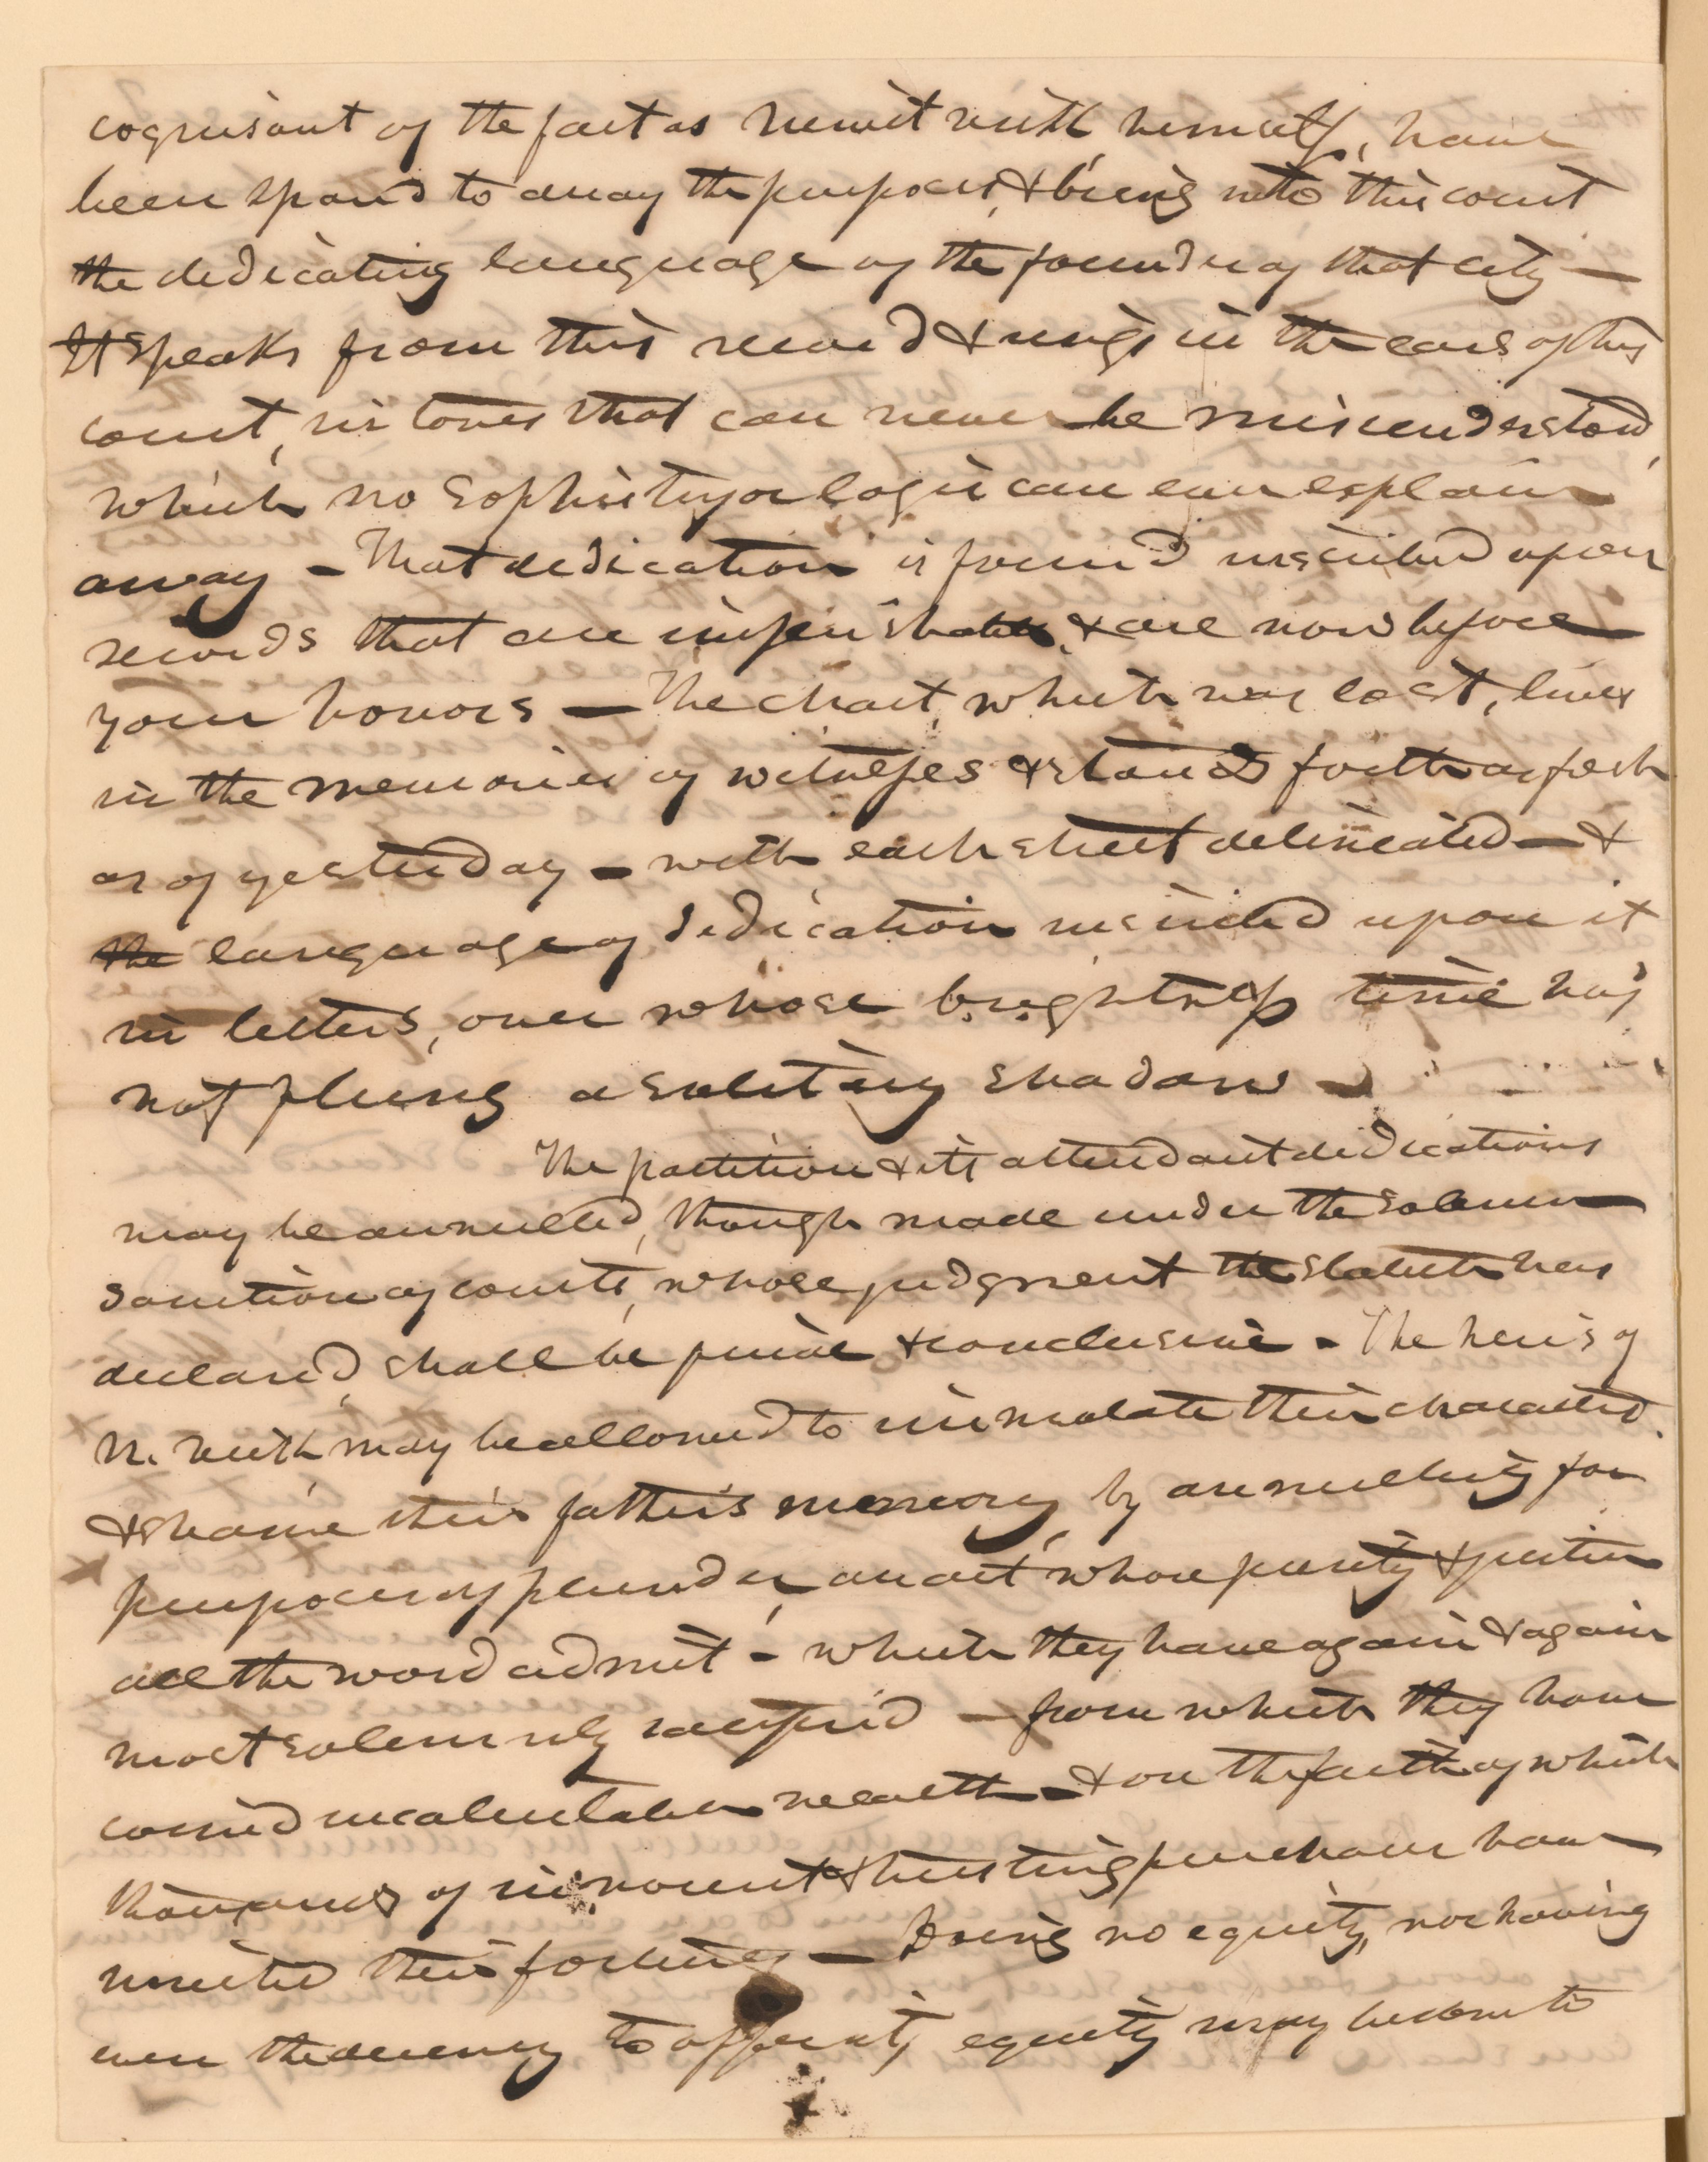 cognisant of the fact as himself, have
been spared to away the purposes, & bring into this court
the dedicating language of the founder of that city —
It speaks from this record & rings in the ears of this
court, in tones that can never be misunderstood,
which no sophistry or logic can ever explain
away — That dedication is found inscribed upon
records that are imperishable, & are now before
your honors — The chart, which was lost, lives
in the memories of witnesses & stands forth as fresh
as of yesterday — with each street delineated — &
the language of dedication inscribed upon it
in letters, over whose brightness time has
not flung a solitary shadow —
The partition & its attendant dedications
may be annulled, though made under the solemn
sanction of courts, whose judgment the statute has
declared, shall be final & conclusive — The heirs of
N. may be allowed to immolate their character
& shame their father's memory, by annulling for
purposes of plunder, an act whose purity & justice
all the world admit — which they have again & again
most solemnly ratified — from which they have
coined incalculable wealth — & on the faith of which
thousands of innocent & trusting purchasers have
invested their fortunes — Doing no equity, nor having
even the decency to offer it, equity may be done to